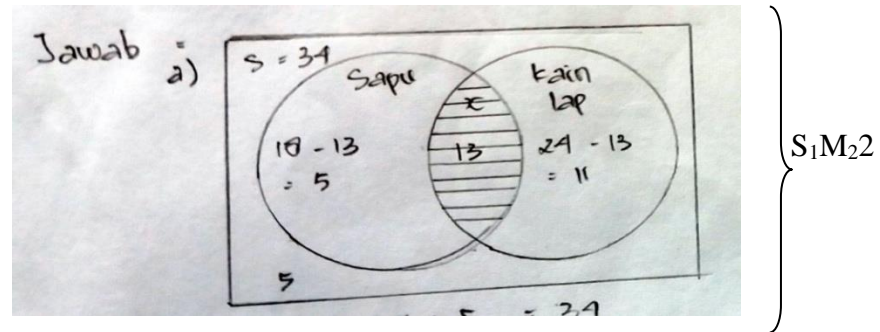 Jawab :
a)
S = 34
Sapu
kain
lap
x
18 - 13
= 5
13
24 - 13
= 11
5
5 = 34
S₁M₂2